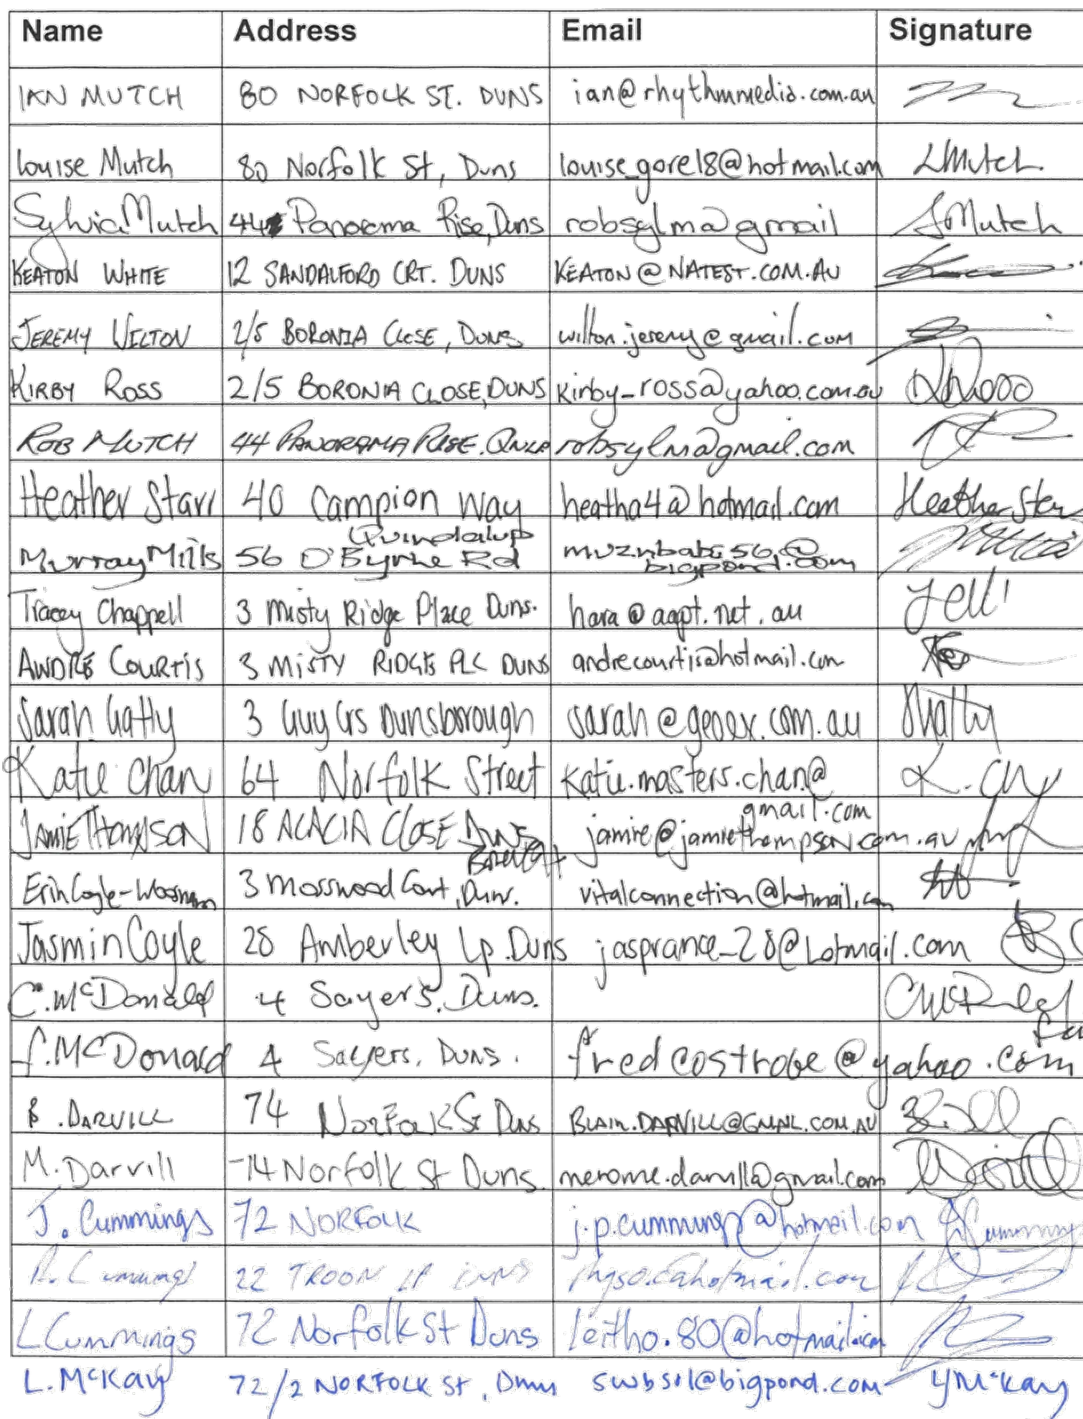 Name Address Email Signature
IAN MUTCH 80 NORFOLK ST. DUNS ian@rhythmmedia.com.au
Louise Mutch 80 Norfolk St, Duns louise_gore18@hotmail.com LMutch
Sylvia Mutch 44 Panorama Rise, Duns robsylm@gmail SMutch
KEATON WHITE 12 SANDALFORD CRT. DUNS KEATON@NATEST.COM.AU
JEREMY WILTON 2/5 BORONIA CLOSE, DUNS wilton.jeremy@gmail.com
KIRBY ROSS 2/5 BORONIA CLOSE, DUNS kirby_ross@yahoo.com.au
ROB MUTCH 44 PANORAMA RISE. robsylm@gmail.com
Heather Starr 40 Campion Way heatha4@hotmail.com Heather
Quindalup
Murray Mills 56 O'Byrne Rd @
bigpond.com
Tracey Chappell 3 Misty Ridge Place Duns. hara@aapt.net.au
ANDRÉ COURTIS 3 MISTY RIDGE PLC DUNS andrecourtis@hotmail.com
Sarah Gatty 3 Guy Crs Dunsborough sarah@geoex.com.au
Katie Chan 64 Norfolk Street katie.masters.chan@
gmail.com
JAMIE THOMPSON 18 ACACIA CLOSE DUNS jamie@jamiethompson.com.au
Erin Coyle- 3 Mosswood Court, Duns. vitalconnection@hotmail.com
Jasmin Coyle 28 Amberley Lp. Duns jasprance_28@hotmail.com
C. McDonald 4 Sayers, Duns.
f. McDonald 4 Sayers, Duns. fredcostrobe@yahoo.com
B. DARVILL 74 Norfolk St Duns BLAIN.DARVILL@GMAIL.COM.AU
M. Darvill 74 Norfolk St Duns merome.darvill@gmail.com
J. Cummings 72 NORFOLK j.p.cummings@hotmail.com Cummings
22 TROON LP DUNS
L Cummings 72 Norfolk St Duns leitho.80@hotmail.com
L. McKay 72/2 NORFOLK St, Duns @bigpond.com McKay